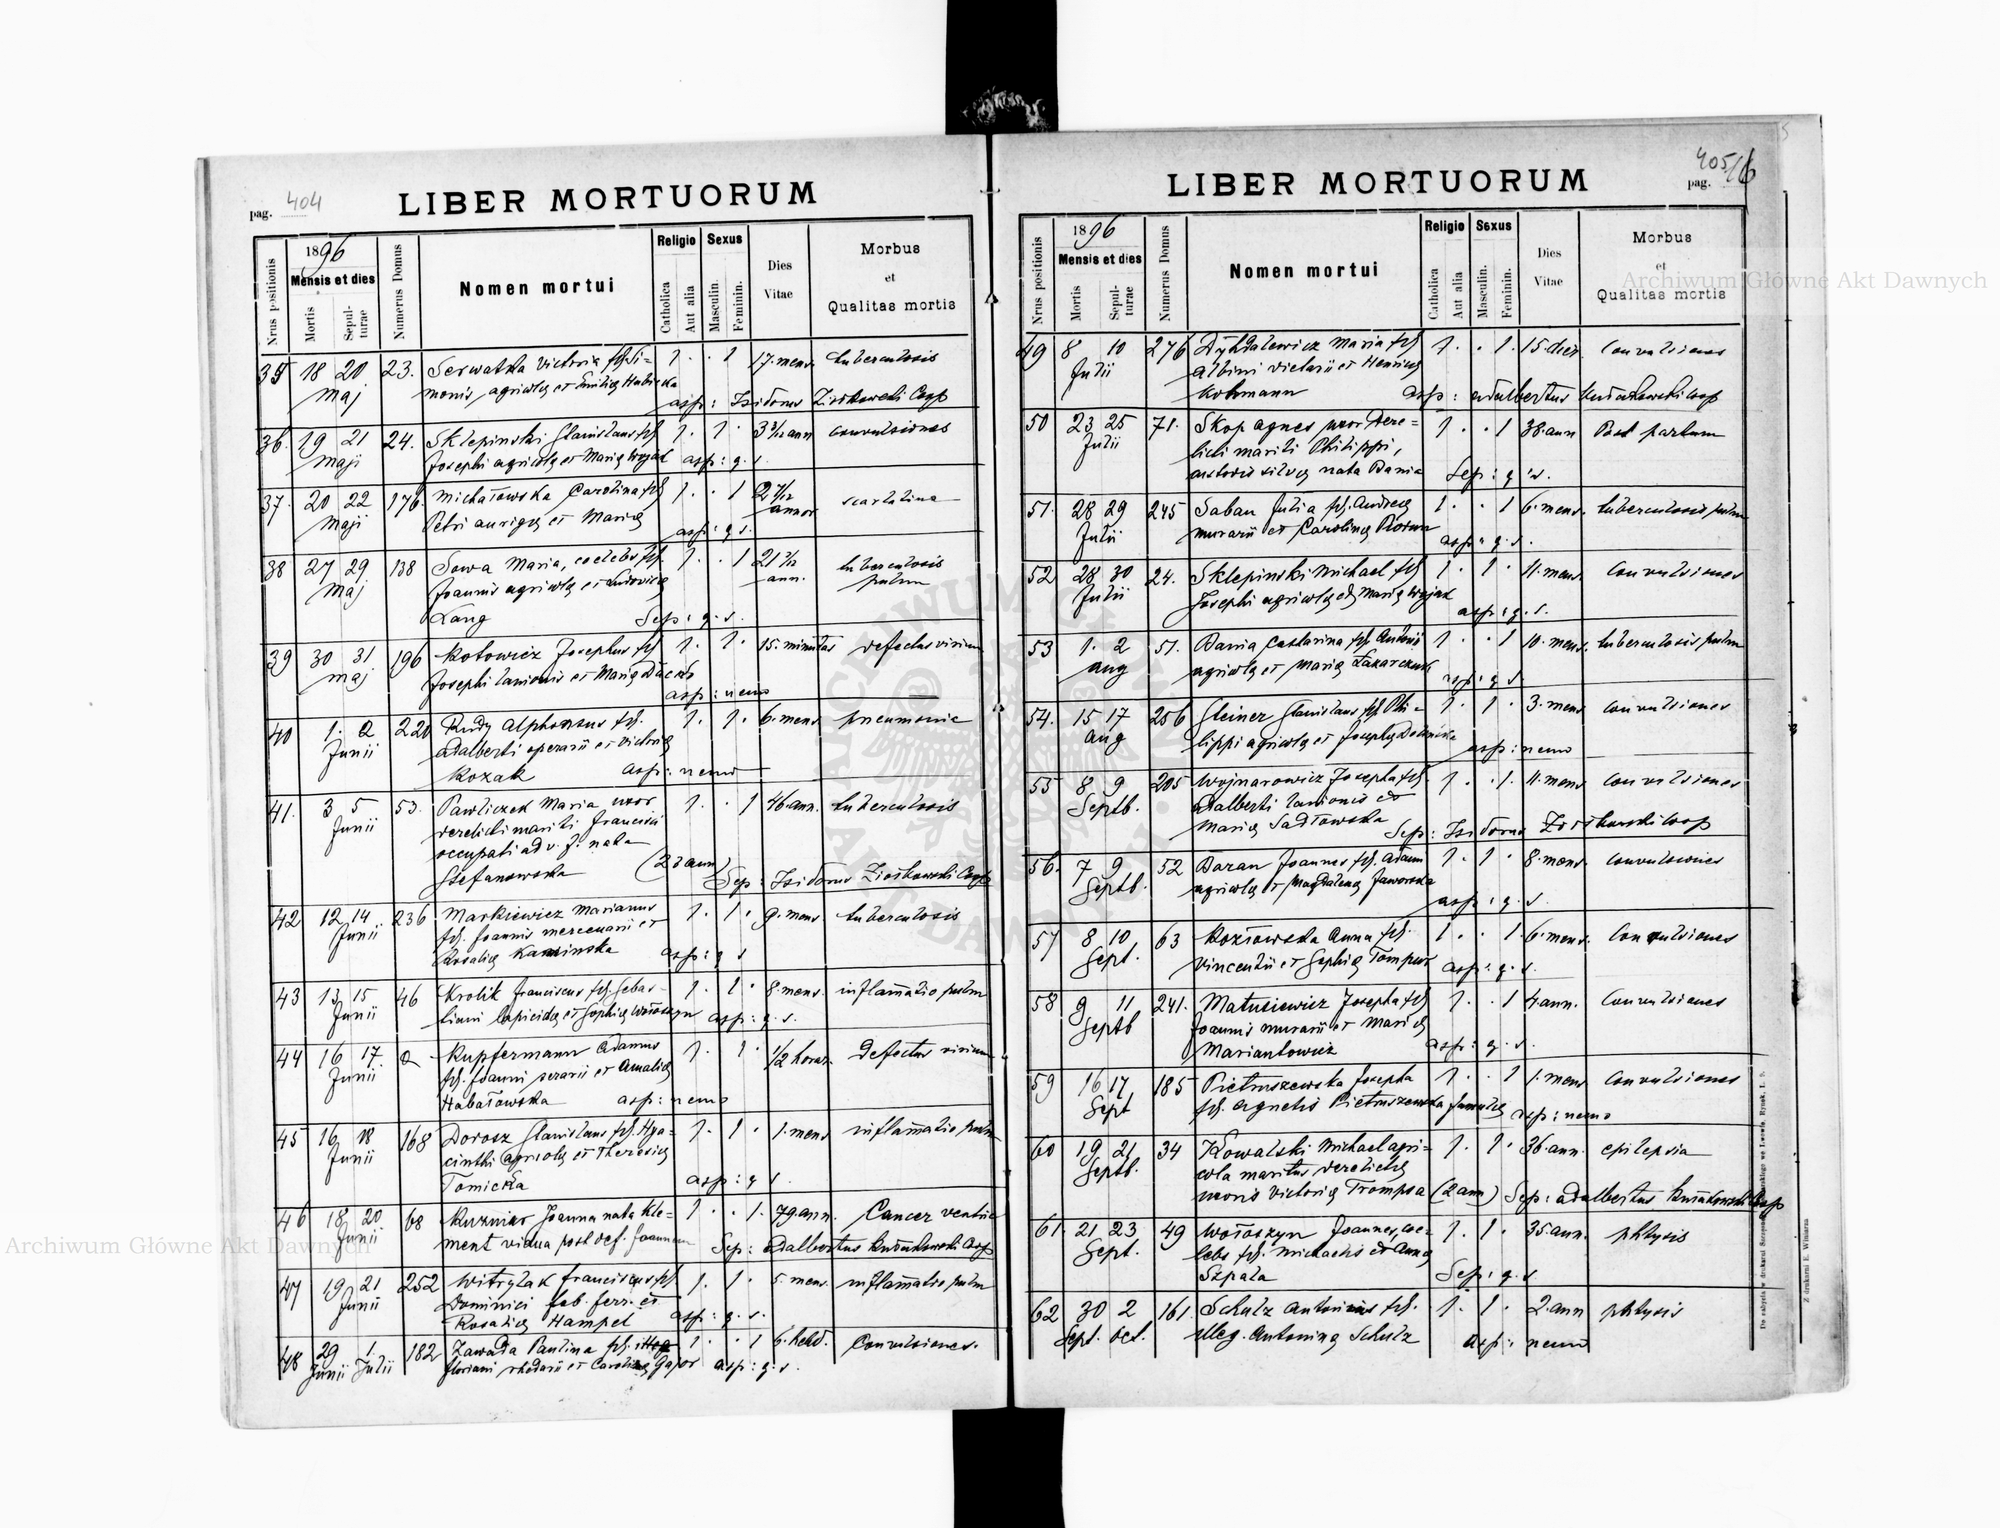 pag. 404
LIBER MORTUORUM
Nrus positionis
1896
Mensis et dies
Mortis
Sepulturae
Numerus Domus
Nomen mortui
Religio
Catholica
Aut alia
Sexus
Masculin.
Feminin.
Dies
Vitae
Morbus
et
Qualitas mortis
35 18 20 23. Serwatka Victoria fil. Si= 1 . . 1 17. mens. tuberculosis
Maj monis agricolae et
asp: Isidorus Ziołkowski Coop
36. 19 21 24. Sklepinski Stanislaus fil 1. 1. 3 3/12 ann convulsiones
Maji Josephi agricolae et Mariae Wojak asp: q. s.
37. 20 22 176. Michałowska Carolina fil 1. . 1 2 7/12 scarlatina
Maji Petri aurigae et Mariae annor
asp: q. s.
38 27 29 138 Sowa Maria, coelebs fil. 1. . 1 21 3/12 tuberculosis
Maj Joannis agricolae et Ludovicae ann. pulm
Lang Sep: q. s.
39 30 31 196 Kotowicz Josephus fil 1. 1. 15. minutas defectus virium
maj Josephi lanionis et Mariae
asp: nemo
40 1. 2 220 Rudy Alphonsus fil. 1. 1. 6. mens pneumonia
Junii Adalberti operarii et Victoriae
Kozak asp: nemo
41. 3 5 53. Pawliczek Maria uxor 1. . 1 46. ann. tuberculosis
Junii derelicti mariti Francisci
occupati ad v. f. nata
Stefanowska (23 ann) Sep: Isidorus Ziołkowski Coop
42 12 14 236 Markiewicz Marianus 1. 1. 9. mens tuberculosis
Junii fil. Joannis mercenarii et
Rosaliae Kaminska asp: q s
43 13 15 46 Krolik Franciscus fil. Sebas- 1. 1. 8. mens. inflamatio pulm
Junii tiani lapicidae et Sophiae Wołoszyn asp: q. s.
44 16 17 2 Kupfermann Adamus 1. 1. 1/2 horae. defectus virium
Junii fil. Joanni serarii et Amaliae
Habatowska asp: nemo
45 16 18 168 Dorosz Stanislaus fil. Hya= 1. 1. 1. mens inflamatio pulm
Junii cinthi agricolae et Theresiae
Tomicka asp: q s.
46 18 20 68 Kuzniar Joanna nata Kle= 1. . 1. 79. ann. Cancer ventric
Junii ment vidua post def. Joannem Sep: Adalbertus Coop
47 19 21 252 Witrylak Franciscus fil. 1. 1. 5. mens. inflamatio pulm
Junii Dominici fab. ferr. et
Rosaliae Hampel asp: q. s.
48 29 1. 182 Zawada Paulina fil. 1. . 1 6. hebd. Convulsiones.
Junii Julii Floriani rhedarii et Carolinae Gajor asp: q. s.
405/6
pag.
LIBER MORTUORUM
Nrus positionis
1896
Mensis et dies
Mortis
Sepulturae
Numerus Domus
Nomen mortui
Religio
Catholica
Aut alia
Sexus
Masculin.
Feminin.
Dies
Vitae
Morbus
et
Qualitas mortis
49 8 10 276 Dyhdalewicz Maria fil 1. . 1. 15. dies. Convulsiones
Julii Albini vietarii et Henricae
Kohmann asp: Adalbertus coop
50 23 25 71. Skop Agnes uxor dere= 1 . . 1 38. ann Post partum
Julii licti mariti Philippi,
custodis silvae nata Bania Sep: q. s.
51. 28 29 245 Saban Julia fil. Andreae 1. . . 1 6. mens. tuberculosis pulm
Julii murarii et Carolinae asp: q. s.
52 28 30 24. Sklepinski Michael fil 1. 1. 11. mens. Convulsiones
Julii Josephi agricolae et Mariae Wojak asp: q. s.
53 1. 2 51. Bania Catharina fil. Antonii 1 . . 1 10. mens. tuberculosis pulm
aug agricolae et Mariae Łazarczuk asp: q s
54. 15 17 256 Steiner Stanislaus fil. Phi- 1. 1. 3. mens convulsiones
aug lippi agricolae et Josephae asp: nemo
55 8 9 205 Wojnarowicz Josepha fil. 1. . 1. 11. mens Convulsiones
Septb. Adalberti lanionis et
Mariae Sadłowska Sep: Isidorus Ziołkowski coop
56. 7 9 52 Baran Joannes fil. Adami 1. 1. 8. mens. Convulsiones
Septb. agricolae et Magdalenae Jaworska
asp: q. s.
57 8 10 63 Kozłowska Anna fil. 1. . 1. 6. mens. Convulsiones
Sept. Vincentii et Sophiae asp: q. s.
58 9 11 241. Matusiewicz Josepha fil 1. . 1 4 ann. Convulsiones
Septb Joannis murarii et Mariae
Mariantowicz asp: q. s.
59 16 17 185 Pietruszewska Josepha 1. . 1 1. mens Convulsiones
Sept fil. Agnetis Pietruszewska famulae asp: nemo
60 19 21 34 Kowalski Michael agri= 1. 1. 36. ann. epilepsia
Septb. cola maritus derelictae
uxoris Victoriae Trompsa (2 ann) Sep: Adalbertus Coop
61. 21 23 49 Wołoszyn Joannes, coe= 1. 1. 35. ann. phtysis
Sept. lebs fil. Michaelis et Annae
Szpała Sep: q. s.
62 30 2 161. Schulz Antonius fil. 1. 1. 2. ann phtysis
Sept. Oct. illeg. Antoninae Schulz asp: nemo
Z drukarni E. Winiarza
Archiwum Główne Akt Dawnych
Archiwum Główne Akt Dawnych
ARCHIWUM GŁÓWNE AKT DAWNYCH